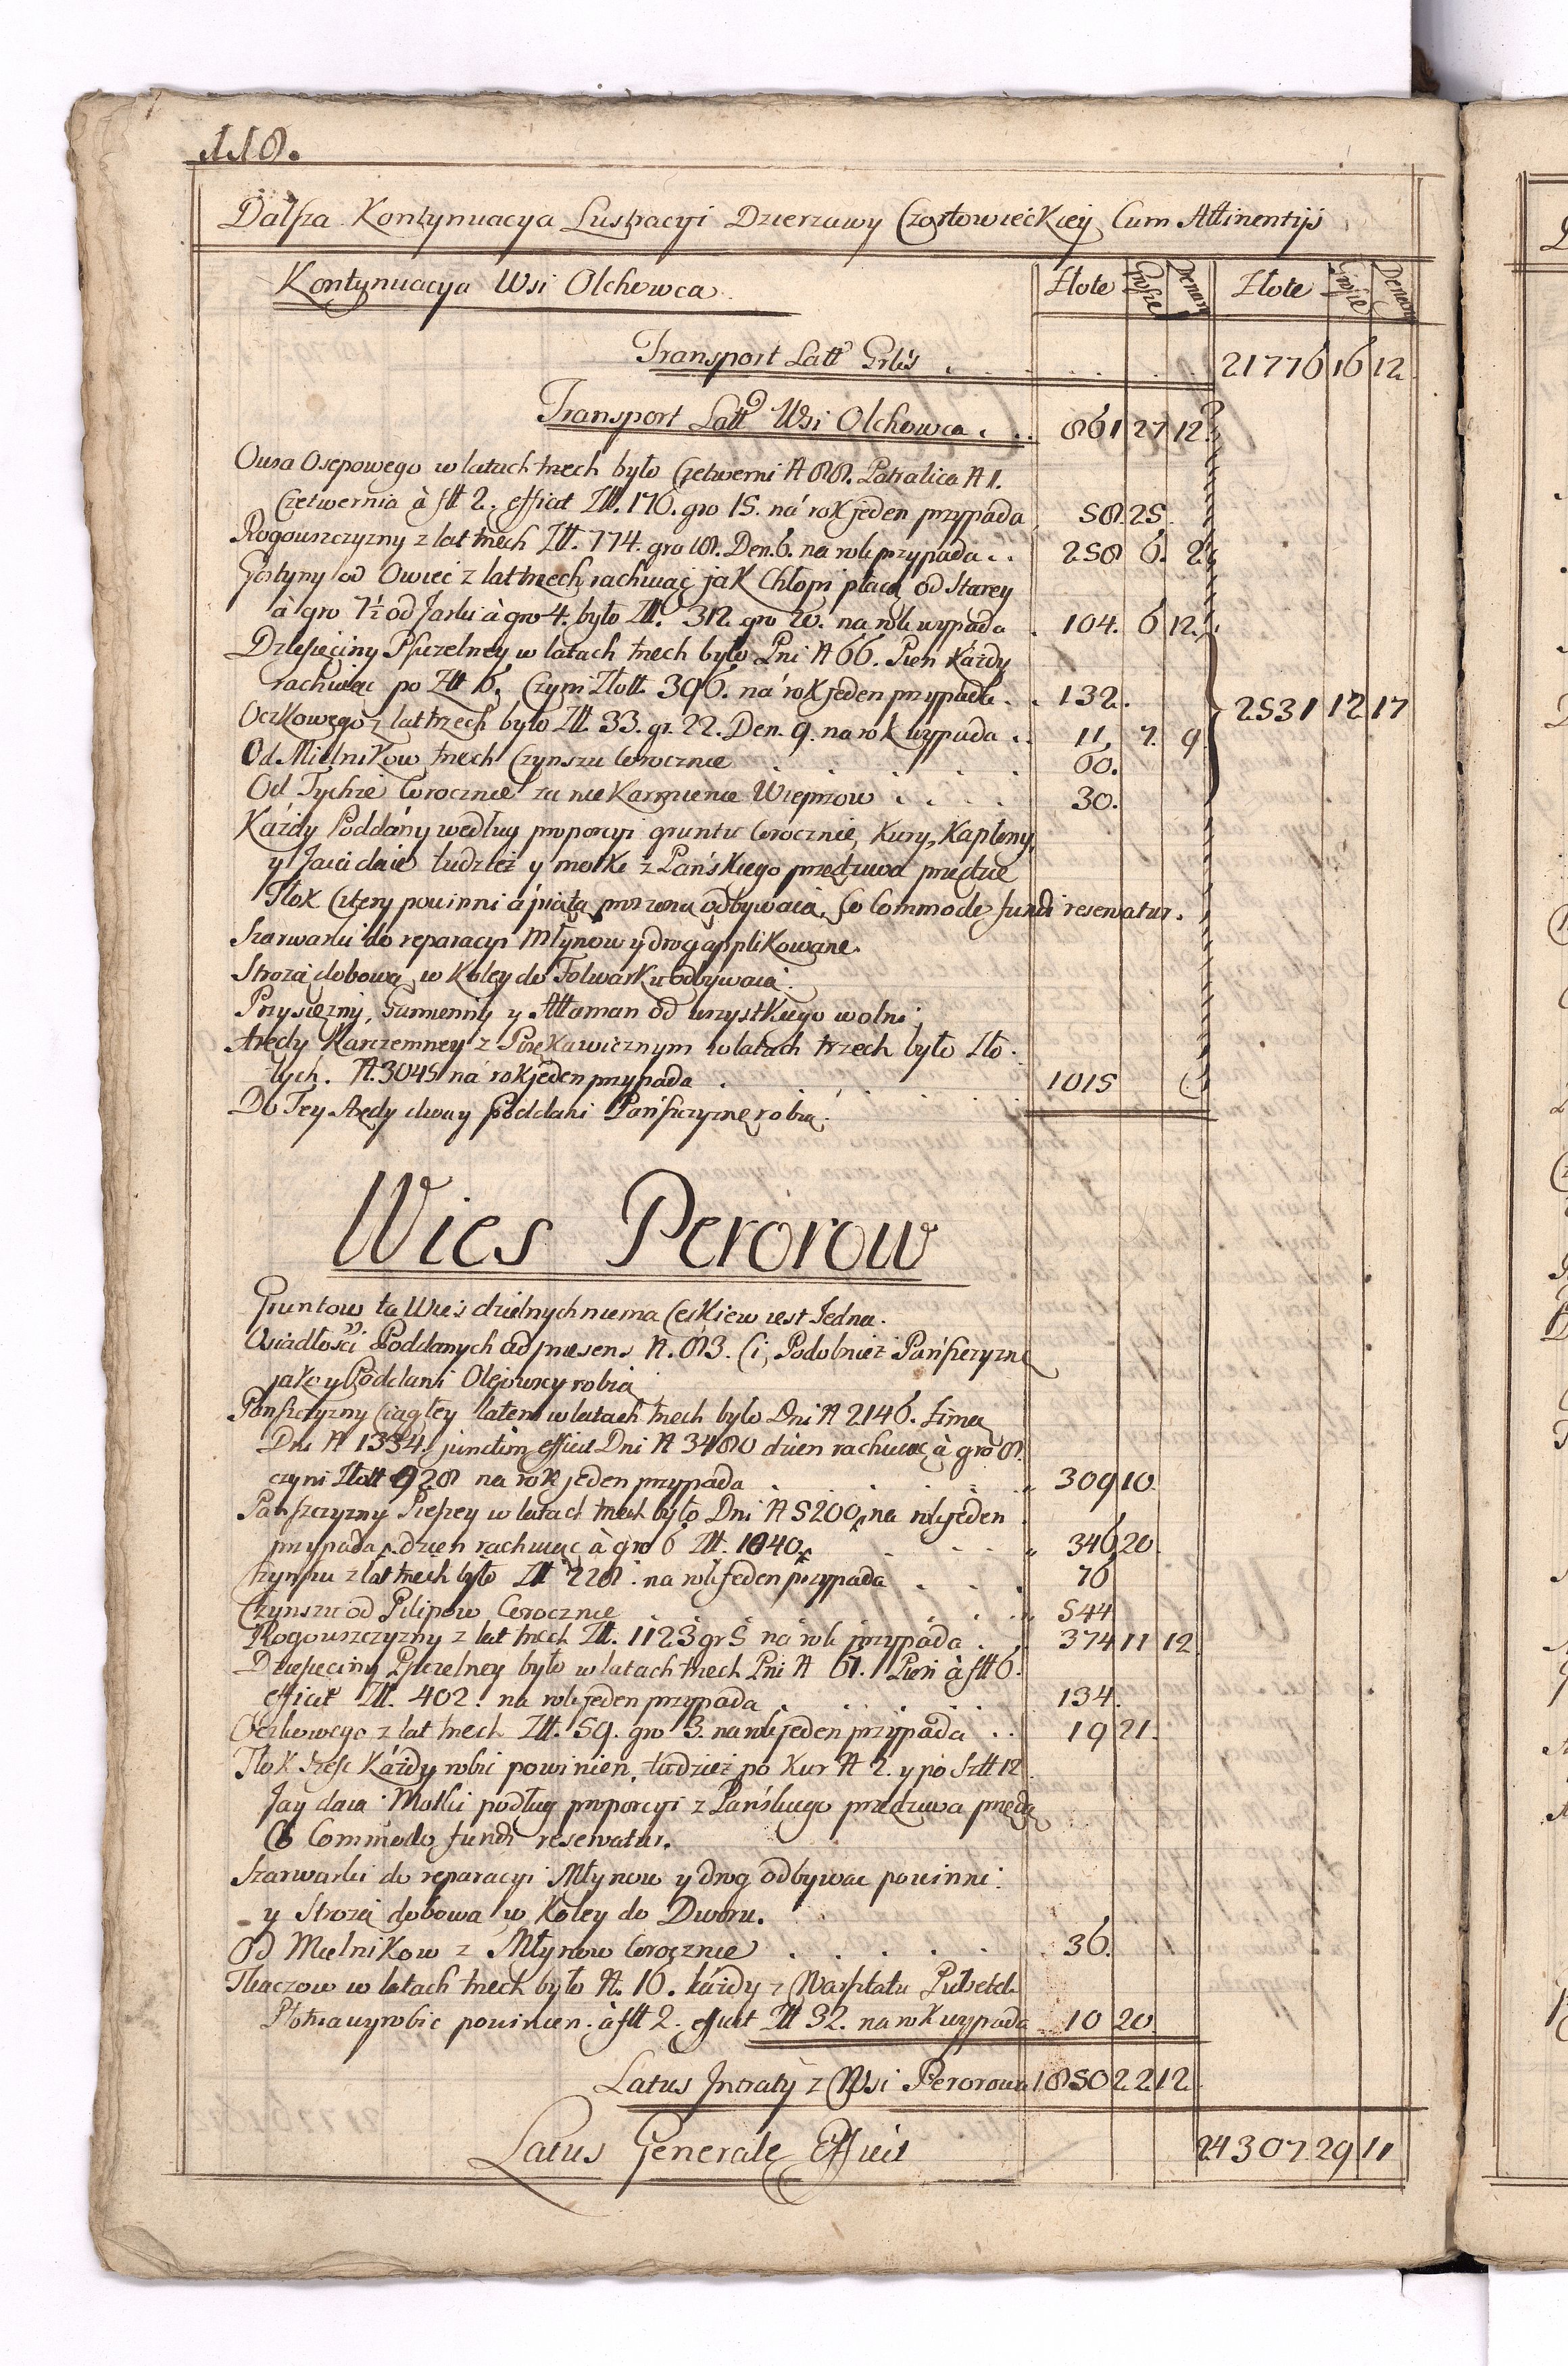 118.
Dalsza Kontynuacya Lustracyi Dzierzawy Czortowieckiey Cum Attinentijs
Kontynuacya Wsi Olchowca. Złote Grosze Denary Złote Grosze Denary
Transport Latt Grlis . . . . . 21776 16 12
Transport Latt Wsi Olchowca . . . 861 27 12
Owsa Osepowego w latach trzech było Czetwerni N 88. Patralica N 1.
Czetwernia à ƒtt 2. efficit Ztt. 176. gro 15. ná rok jeden przypáda 58. 25.
Rogouszczyzny z lat trzech Ztt. 774. gro 18. Den. 6. na rok przypada . . 258 6. 2
Gostyny od Owiec z lat trzech rachuiąc jak Chłopi płacą od Starey
à gro 7½ od Jarki à gro 4. było Ztt. 312. gro 20. na rok wypada . 104. 6 12.
Dziesięciny Pszczelney w latach trzech było Pni N 66. Pień każdy
rachuiąc po Ztt 6. Czyni Złott. 396. ná rok jeden przypada . . 132.
2531 12 17
Oczkowego z lat trzech było Ztt. 33. gr. 22. Den. 9. na rok wypada . . 11. 7. 9
Od Mielnikow trzech Czynszu Corocznie . . . . . 60.
Od Tychże Corocznie za nie Karmienie Wieprzow . . . . 30.
Káżdy Poddány według proporcyi gruntu Corocznie, Kury, Kapłony,
y Jaia daie tudzież y motki z Pańskiego przędziwa przędzie
Tłok Cztery powinni á piątą proszoną odbywaią, Co Commode fundi reservatur.
Szarwarki do reparacyi Młynow y drog applikowane.
Strożą dobową w Koley do Folwarku odbywaią.
Przysiężny, Gumienny y Attaman od wszystkiego wolni.
Arędy Karczemney z Porękawicznym w latach trzech było Zło-
tych. N. 3045 ná rok jeden przypada . 1015
Do Tey Arędy dway Poddani Pańszczyznę robią.
Wies Perorow
Gruntow ta Wieś dzielnych niema Cerkiew iest Jedna.
Osiadłości Poddanych ad præsens N. 83. Ci, Podobnież Pańszczyznę
jako y Poddani Olejowscy robią
Pańszczyzny Ciągłey latem w latach trzech było Dni N 2146. Zimą
Dni N 1334. junctim efficit Dni N 3480 dzien rachuiąc à gro 8.
czyni Złott 928 na rok jeden przypada . . . . 309 10.
Pańszczyzny Pieszey w latach trzech było Dni N 5200. na rok jeden
przypada dzien rachuiąc à gro 6 Ztt. 1040. . . . 346 20.
Czynszu z lat trzech było Ztt 228. na rok jeden przypada . . . 76
Czynszu od Pilipow Corocznie . . . . . 544
Rogouszczyzny z lat trzech Ztt. 1123 gr 5 ná rok przypáda . . 374 11 12
Dziesięciny Pszczelney było w latach trzech Pni N 67. Pień à ƒtt 6.
efficit Ztt. 402. na rok jeden przypada . . . . 134.
Oczkowego z lat trzech Ztt. 59. gro 3. na rok jeden przypáda . . 19 21.
Tłok sześć Káżdy robić powinien, tudzież po Kur N 2. y po Sztt 12
Jay daią. Motki podług proporcyi z Pańskiego przędziwa przędą
Co Commodo fundi reservatur.
Szarwarki do reparacyi Młynow y drog odbywać powinni.
y Strożą dobową w Koley do Dworu.
Od Mielnikow z Młynow Corocznie . . . . . 36.
Tkaczow w latach trzech było N. 16. każdy z Warsztatu
Płotna wyrobic powinien. à ƒtt 2. efficit Ztt 32. na rok wypada 10 20.
Latus Intraty z Wsi Perorowa 1850 22 12
Latus Generale Efficit 24307 29 11